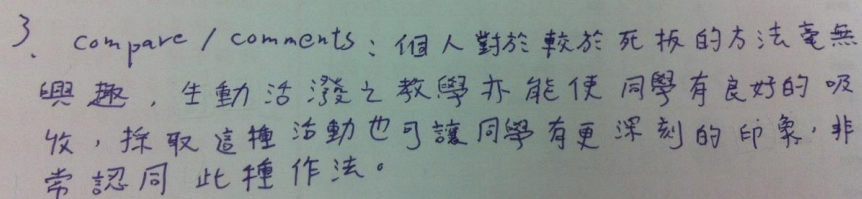 3. compare / comments：個人對於較於死板的方法毫無
興趣，生動活潑之教學亦能使同學有良好的吸
收，採取這種活動也可讓同學有更深刻的印象，非
常認同此種作法。